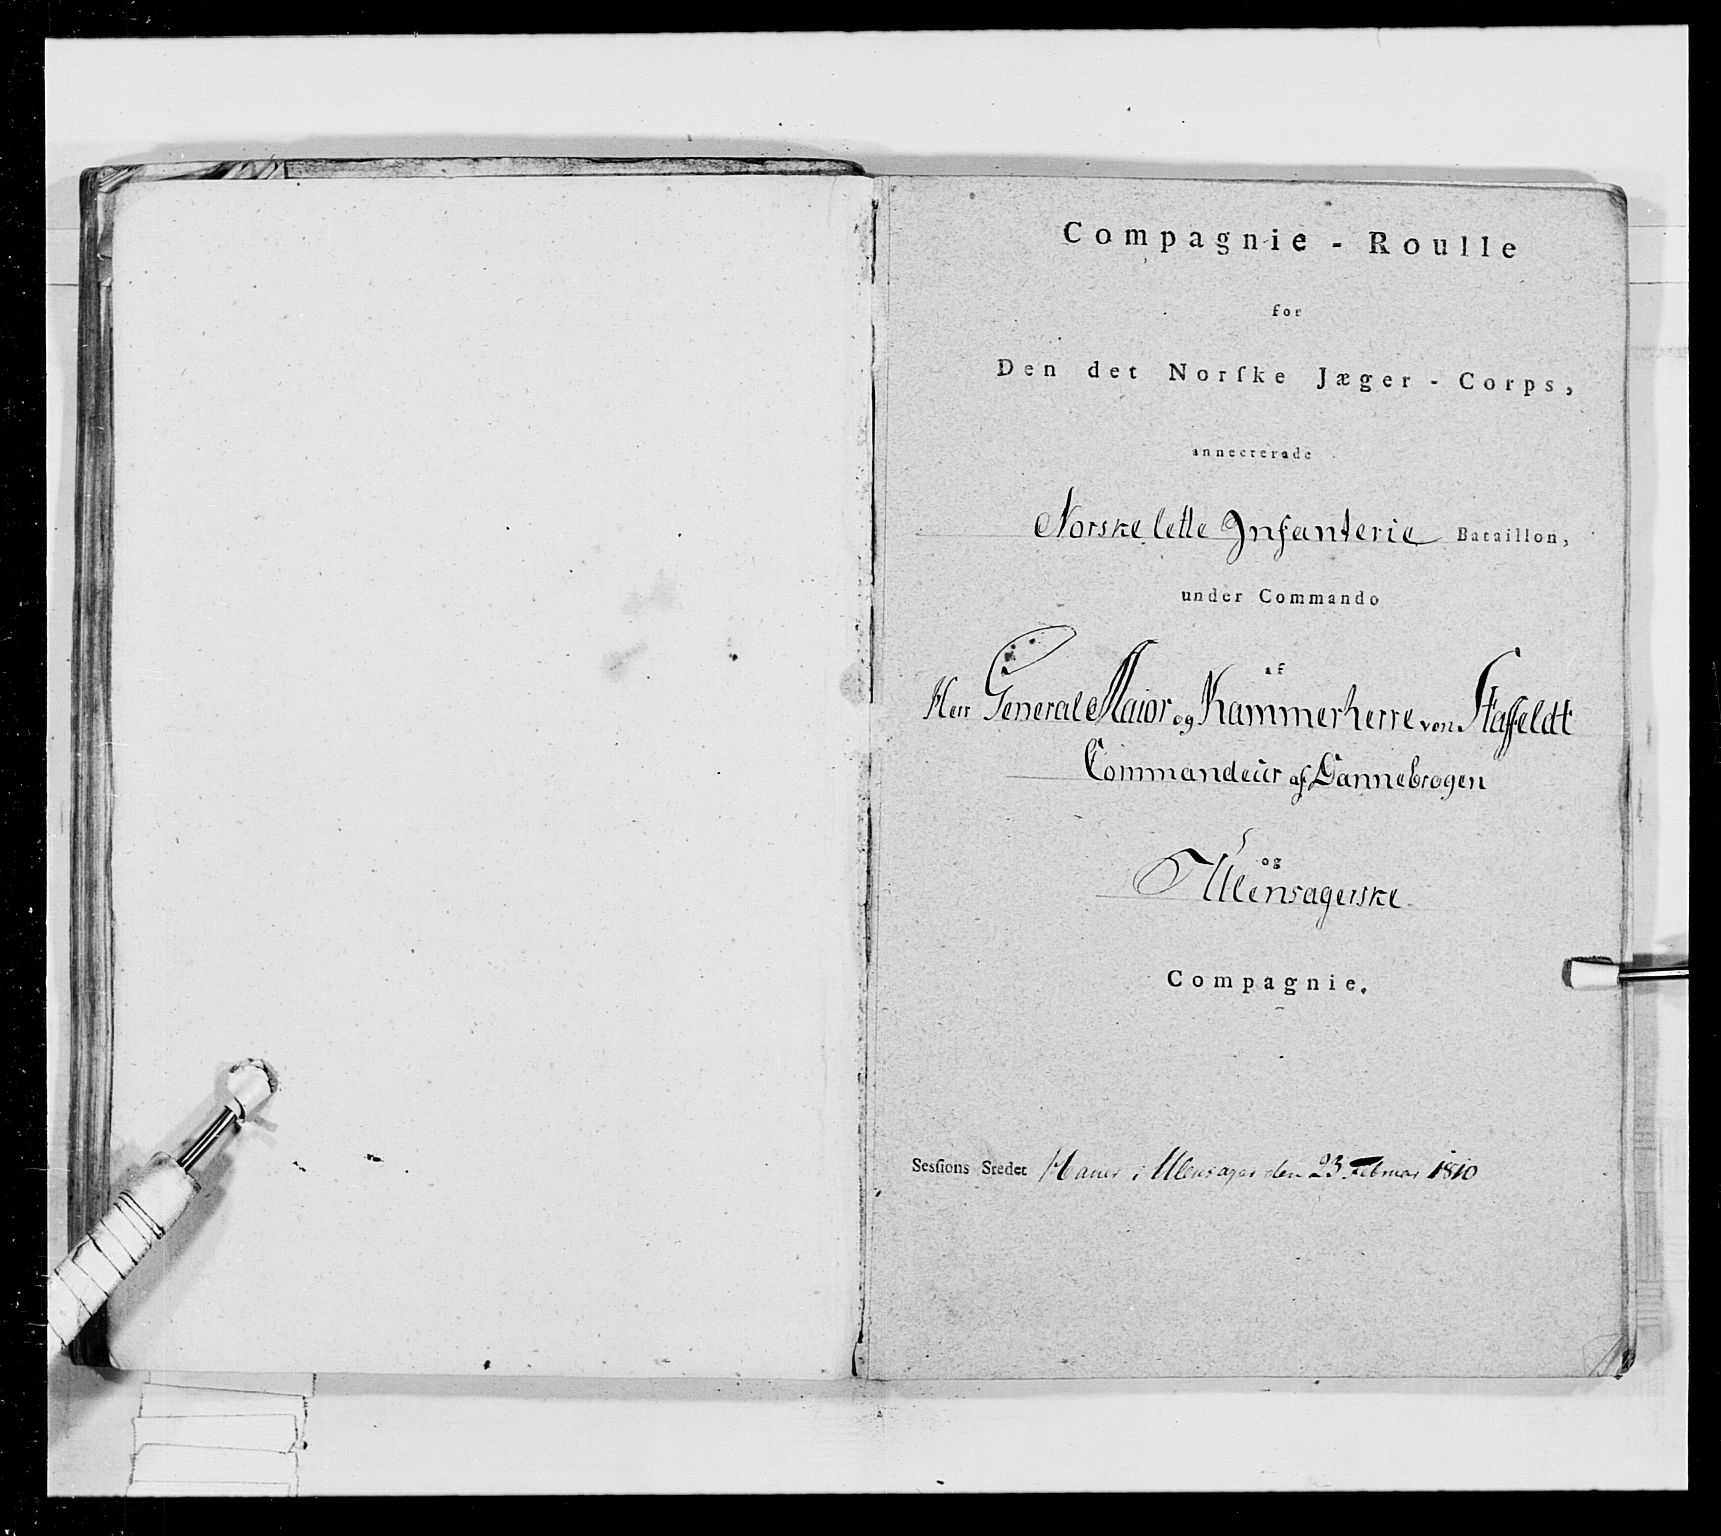 Compagnie - Roulle
for
Den det Norſke Jæger - Corps,
annecterade
Norske lette Infanterie Bataillon,
under Commando
af
Herr General Maior og Kammerherre von Staffeldt
Commandeur af Dannebrogen
og
Ullensagerske
Compagnie.
Sesſions Stedet i Ullensager den 23 Februar 1810